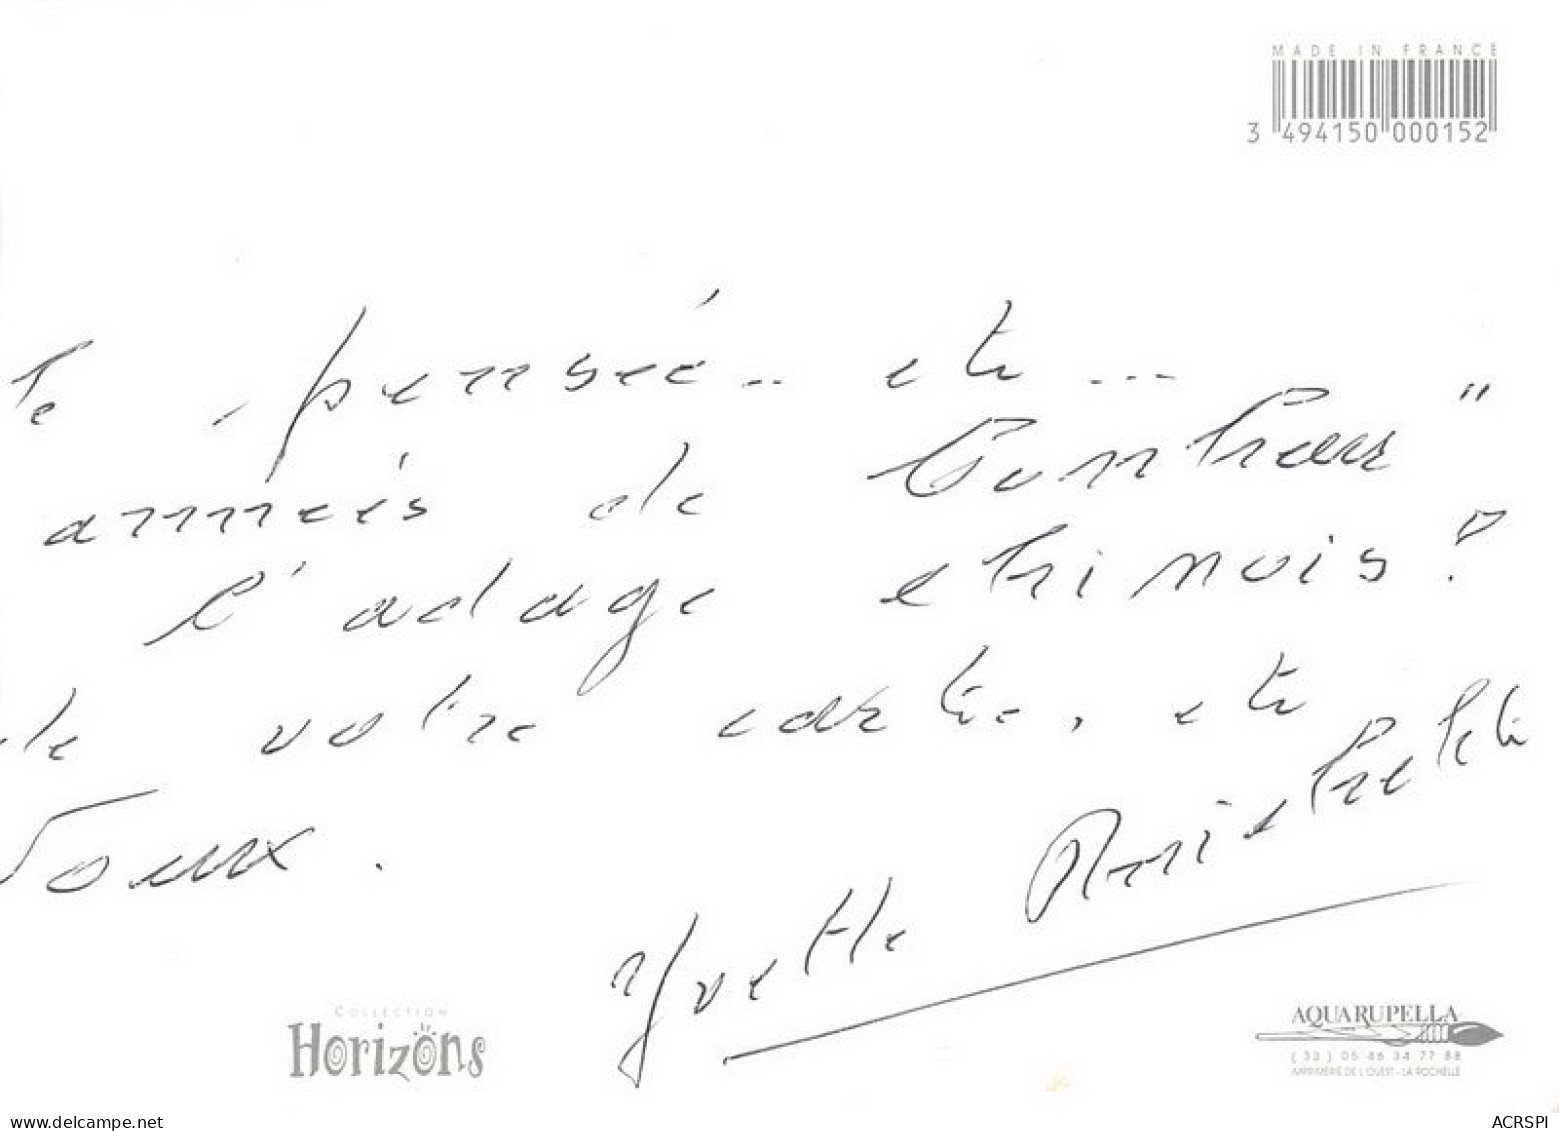 MADE IN FRANCE
3 494150 000152
Te pensée.. et ...
années de bonheur"
l'adage chinois?
de votre carte, et
Voeux.
Yvette
COLLECTION
Horizons
AQUARUPELLA
(33) 05 46 34 77 88
IMPRIMERIE DE L'OUEST - LA ROCHELLE
www.delcampe.net
ACRSPI